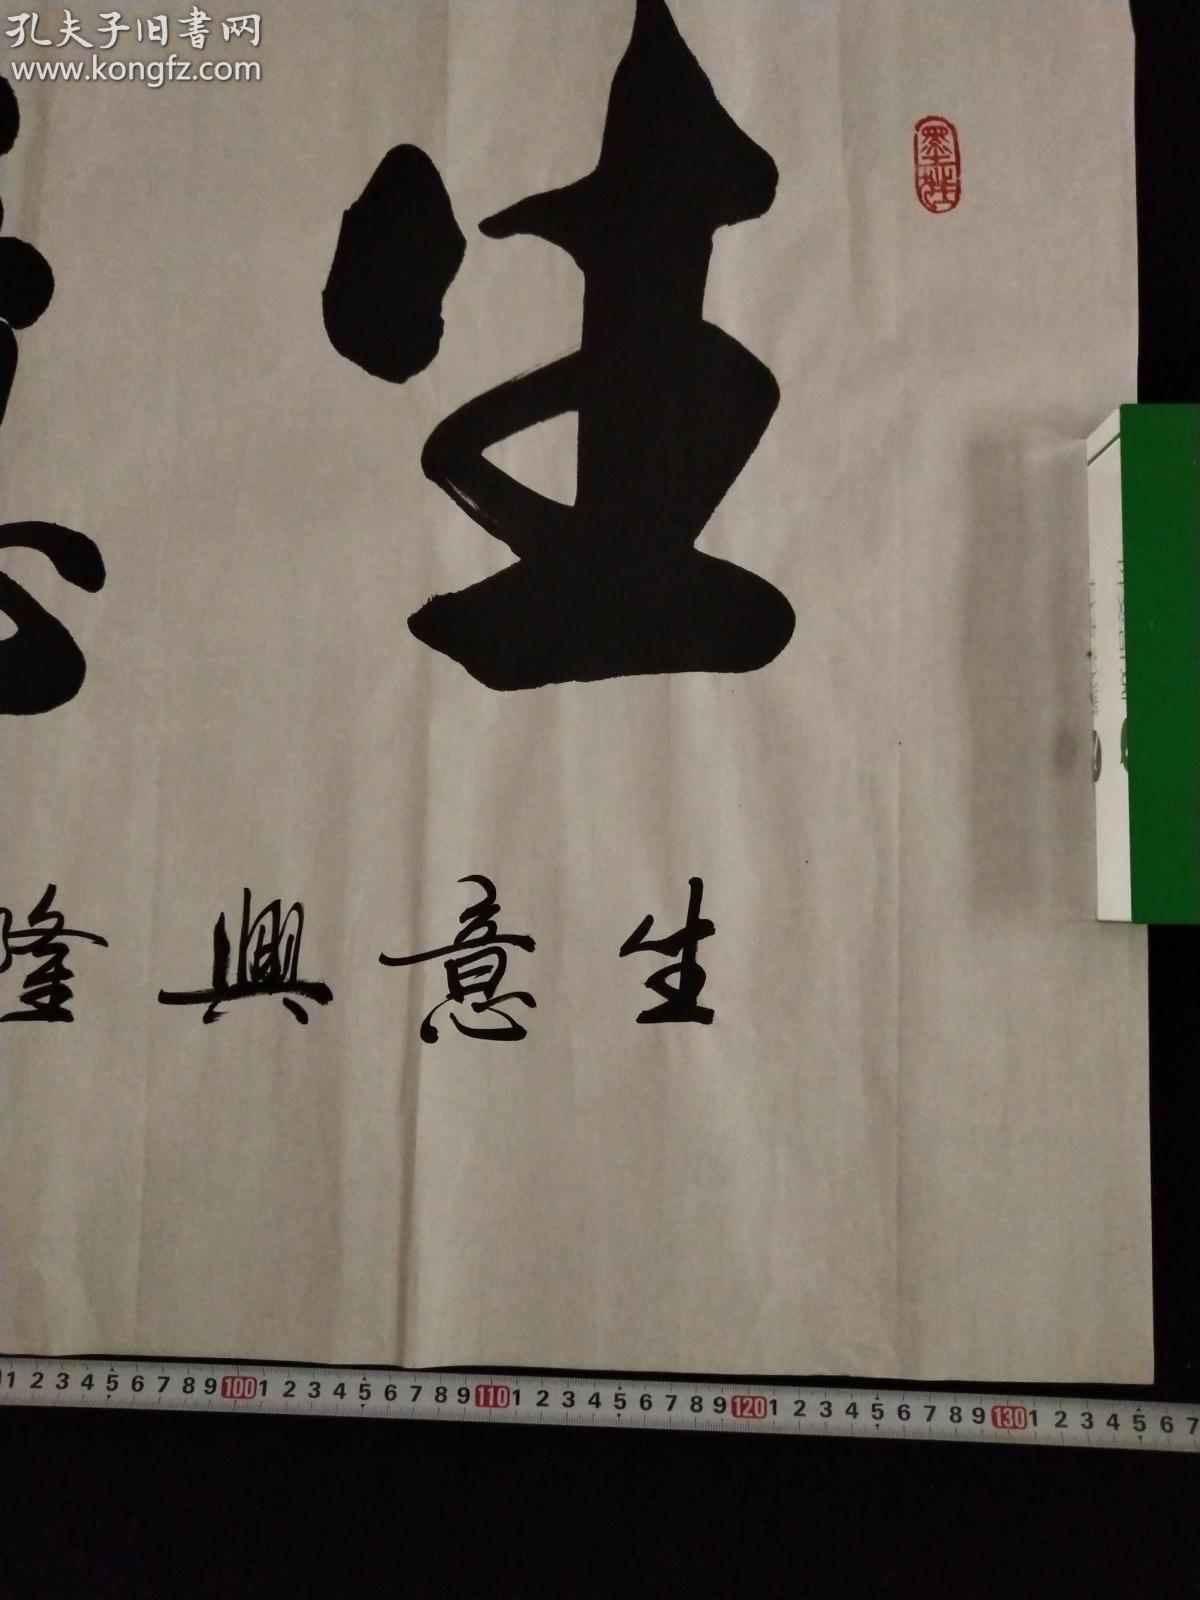 孔夫子旧書网
www.kongfz.com
生
生意興隆
1 2 3 4 5 6 7 8 9 100 1 2 3 4 5 6 7 8 9 110 1 2 3 4 5 6 7 8 9 120 1 2 3 4 5 6 7 8 9 130 1 2 3 4 5 6 7